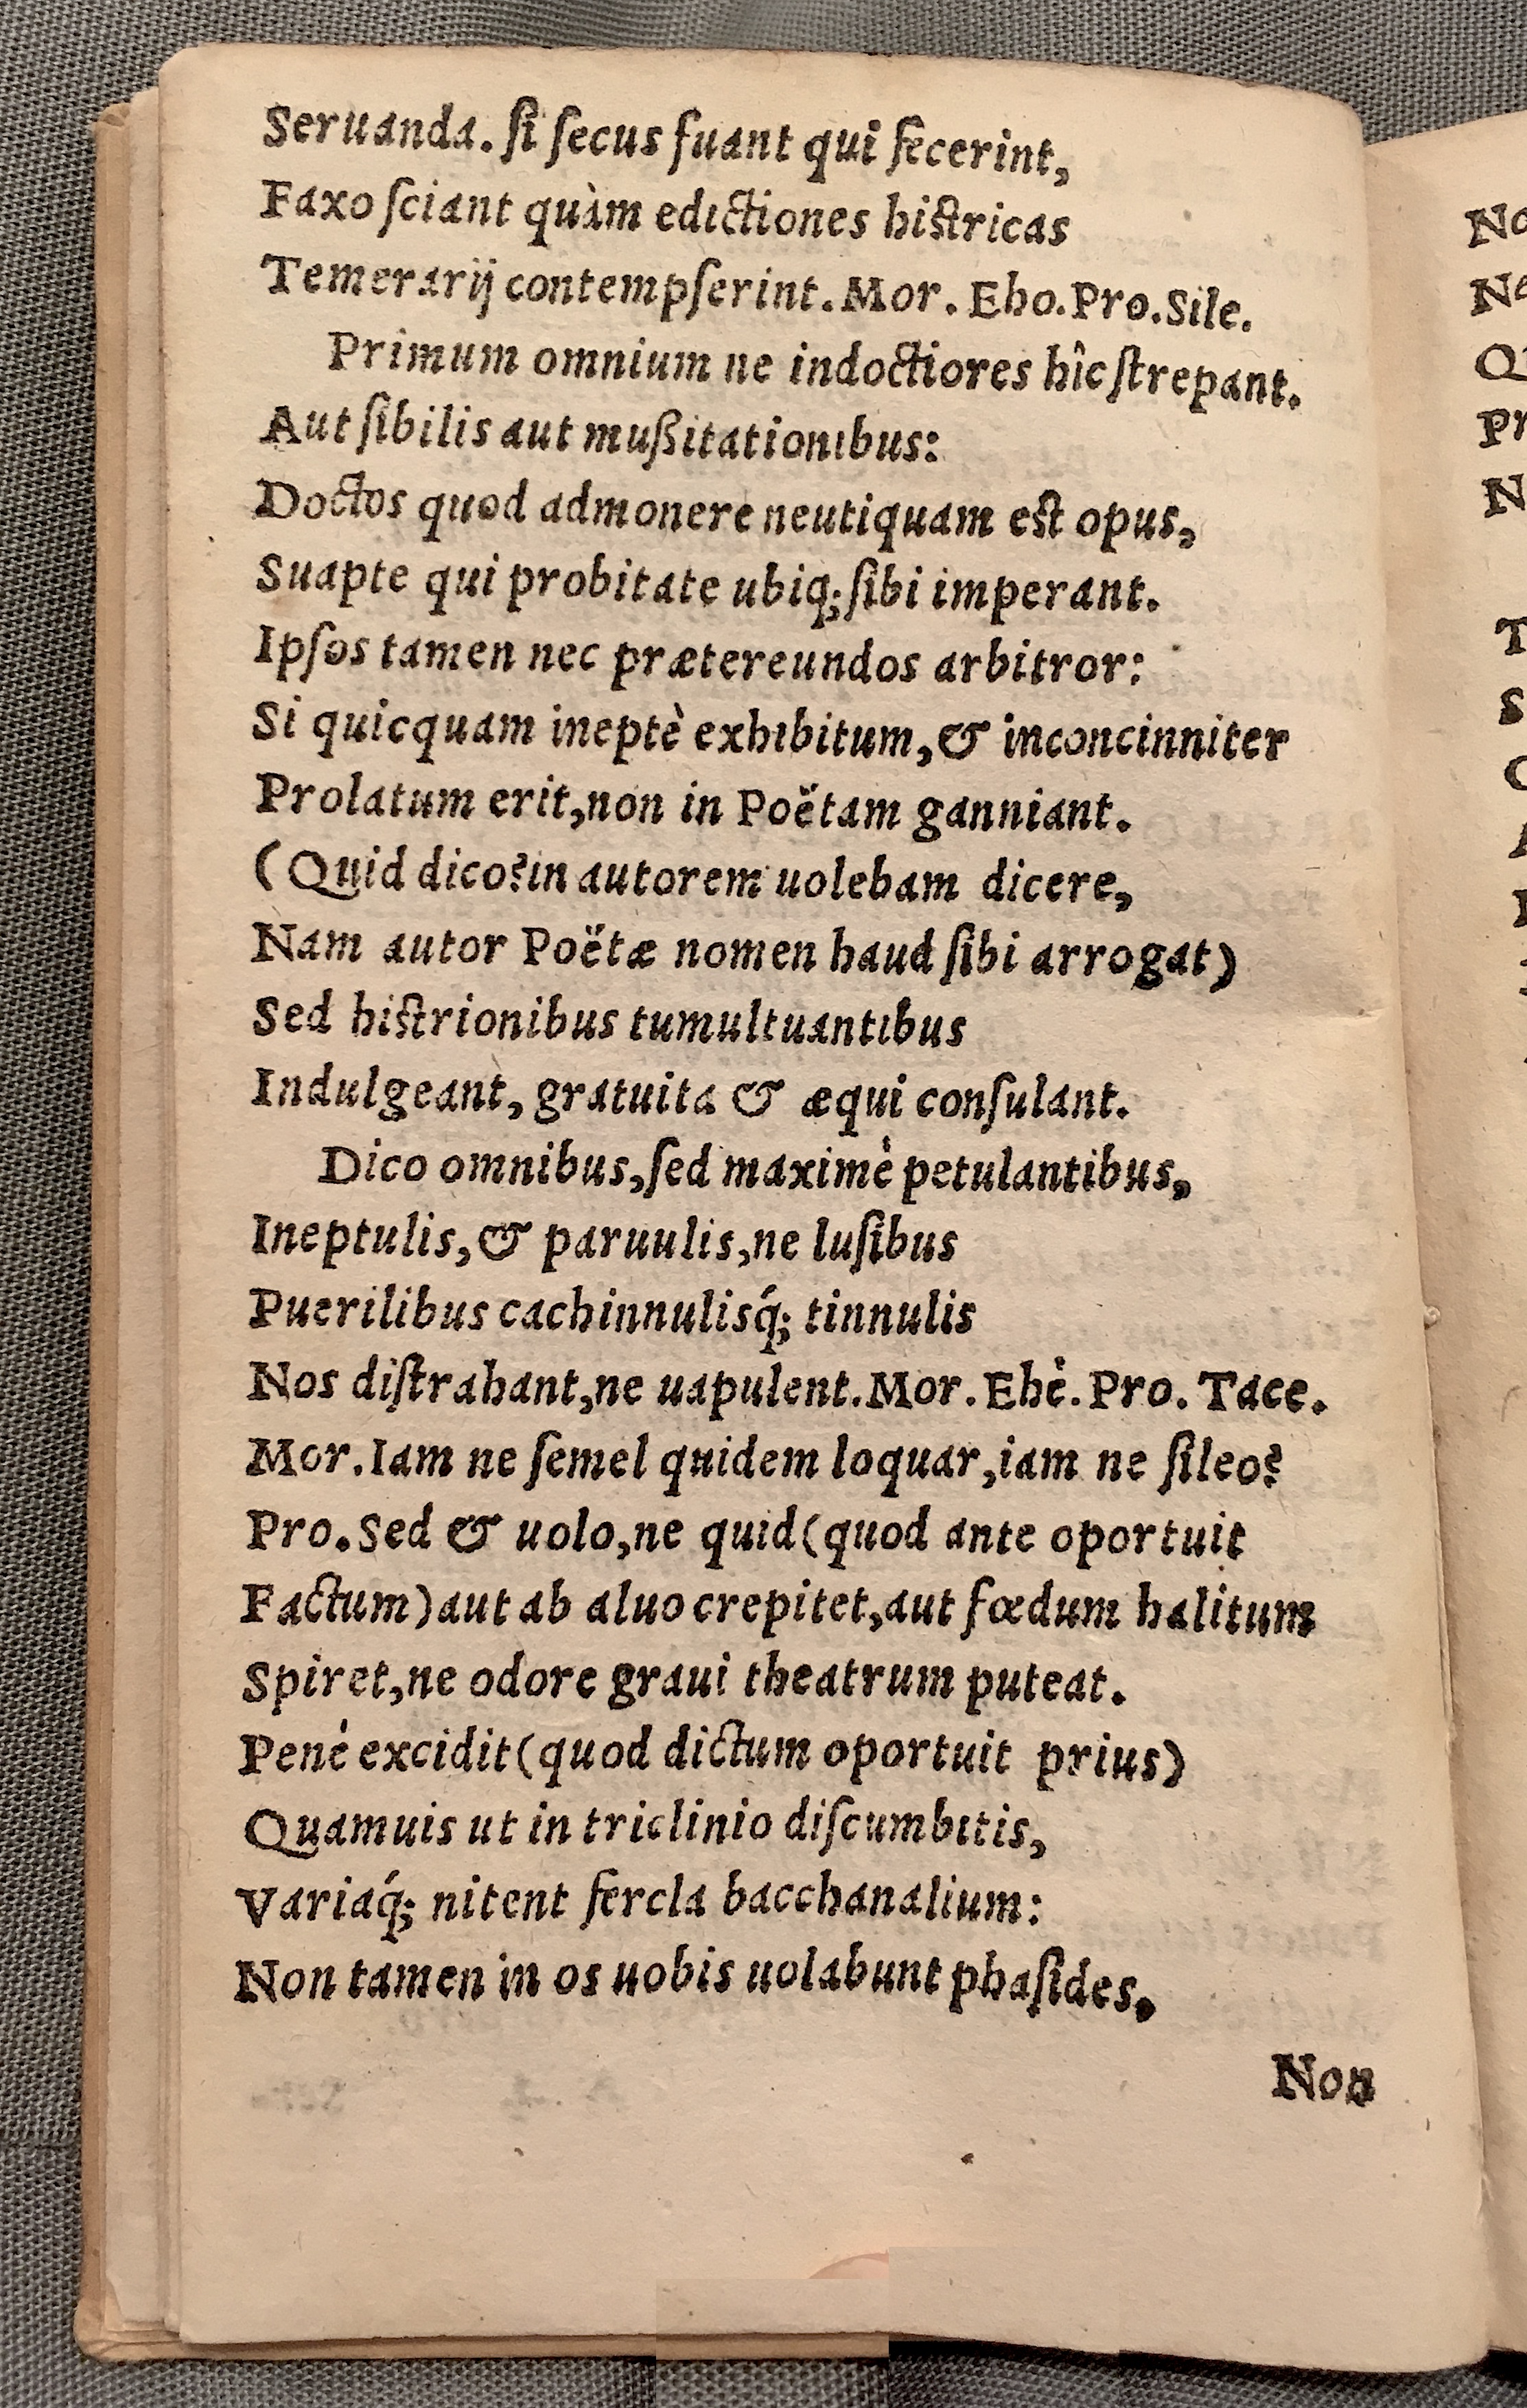 Seruanda. ſi ſecus fuant qui fecerint,
Faxo ſciant quàm edictiones hiſtricas
Temerarij contempſerint. Mor. Eho. Pro. Sile.
Primum omnium ne indoctiores hîc ſtrepant.
Aut ſibilis aut mußitationibus:
Doctos quod admonere neutiquam eſt opus,
Suapte qui probitate ubiq; ſibi imperant.
Ipſos tamen nec prætereundos arbitror:
Si quicquam ineptè exhibitum, & inconcinniter
Prolatum erit, non in Poëtam ganniant.
(Quid dico? in autorem uolebam dicere,
Nam autor Poëtæ nomen haud ſibi arrogat)
Sed hiſtrionibus tumultuantibus
Indulgeant, gratuita & æqui conſulant.
Dico omnibus, ſed maximè petulantibus,
Ineptulis, & paruulis, ne luſibus
Puerilibus cachinnulisq́; tinnulis
Nos diſtrahant, ne uapulent. Mor. Ehè. Pro. Tace.
Mor. Iam ne ſemel quidem loquar, iam ne ſileo?
Pro. Sed & uolo, ne quid (quod ante oportuit
Factum) aut ab aluo crepitet, aut fœdum halitum
Spiret, ne odore graui theatrum puteat.
Penè excidit (quod dictum oportuit prius)
Quamuis ut in triclinio diſcumbitis,
Variaq́; nitent fercla bacchanalium:
Non tamen in os uobis uolabunt phaſides,
Non